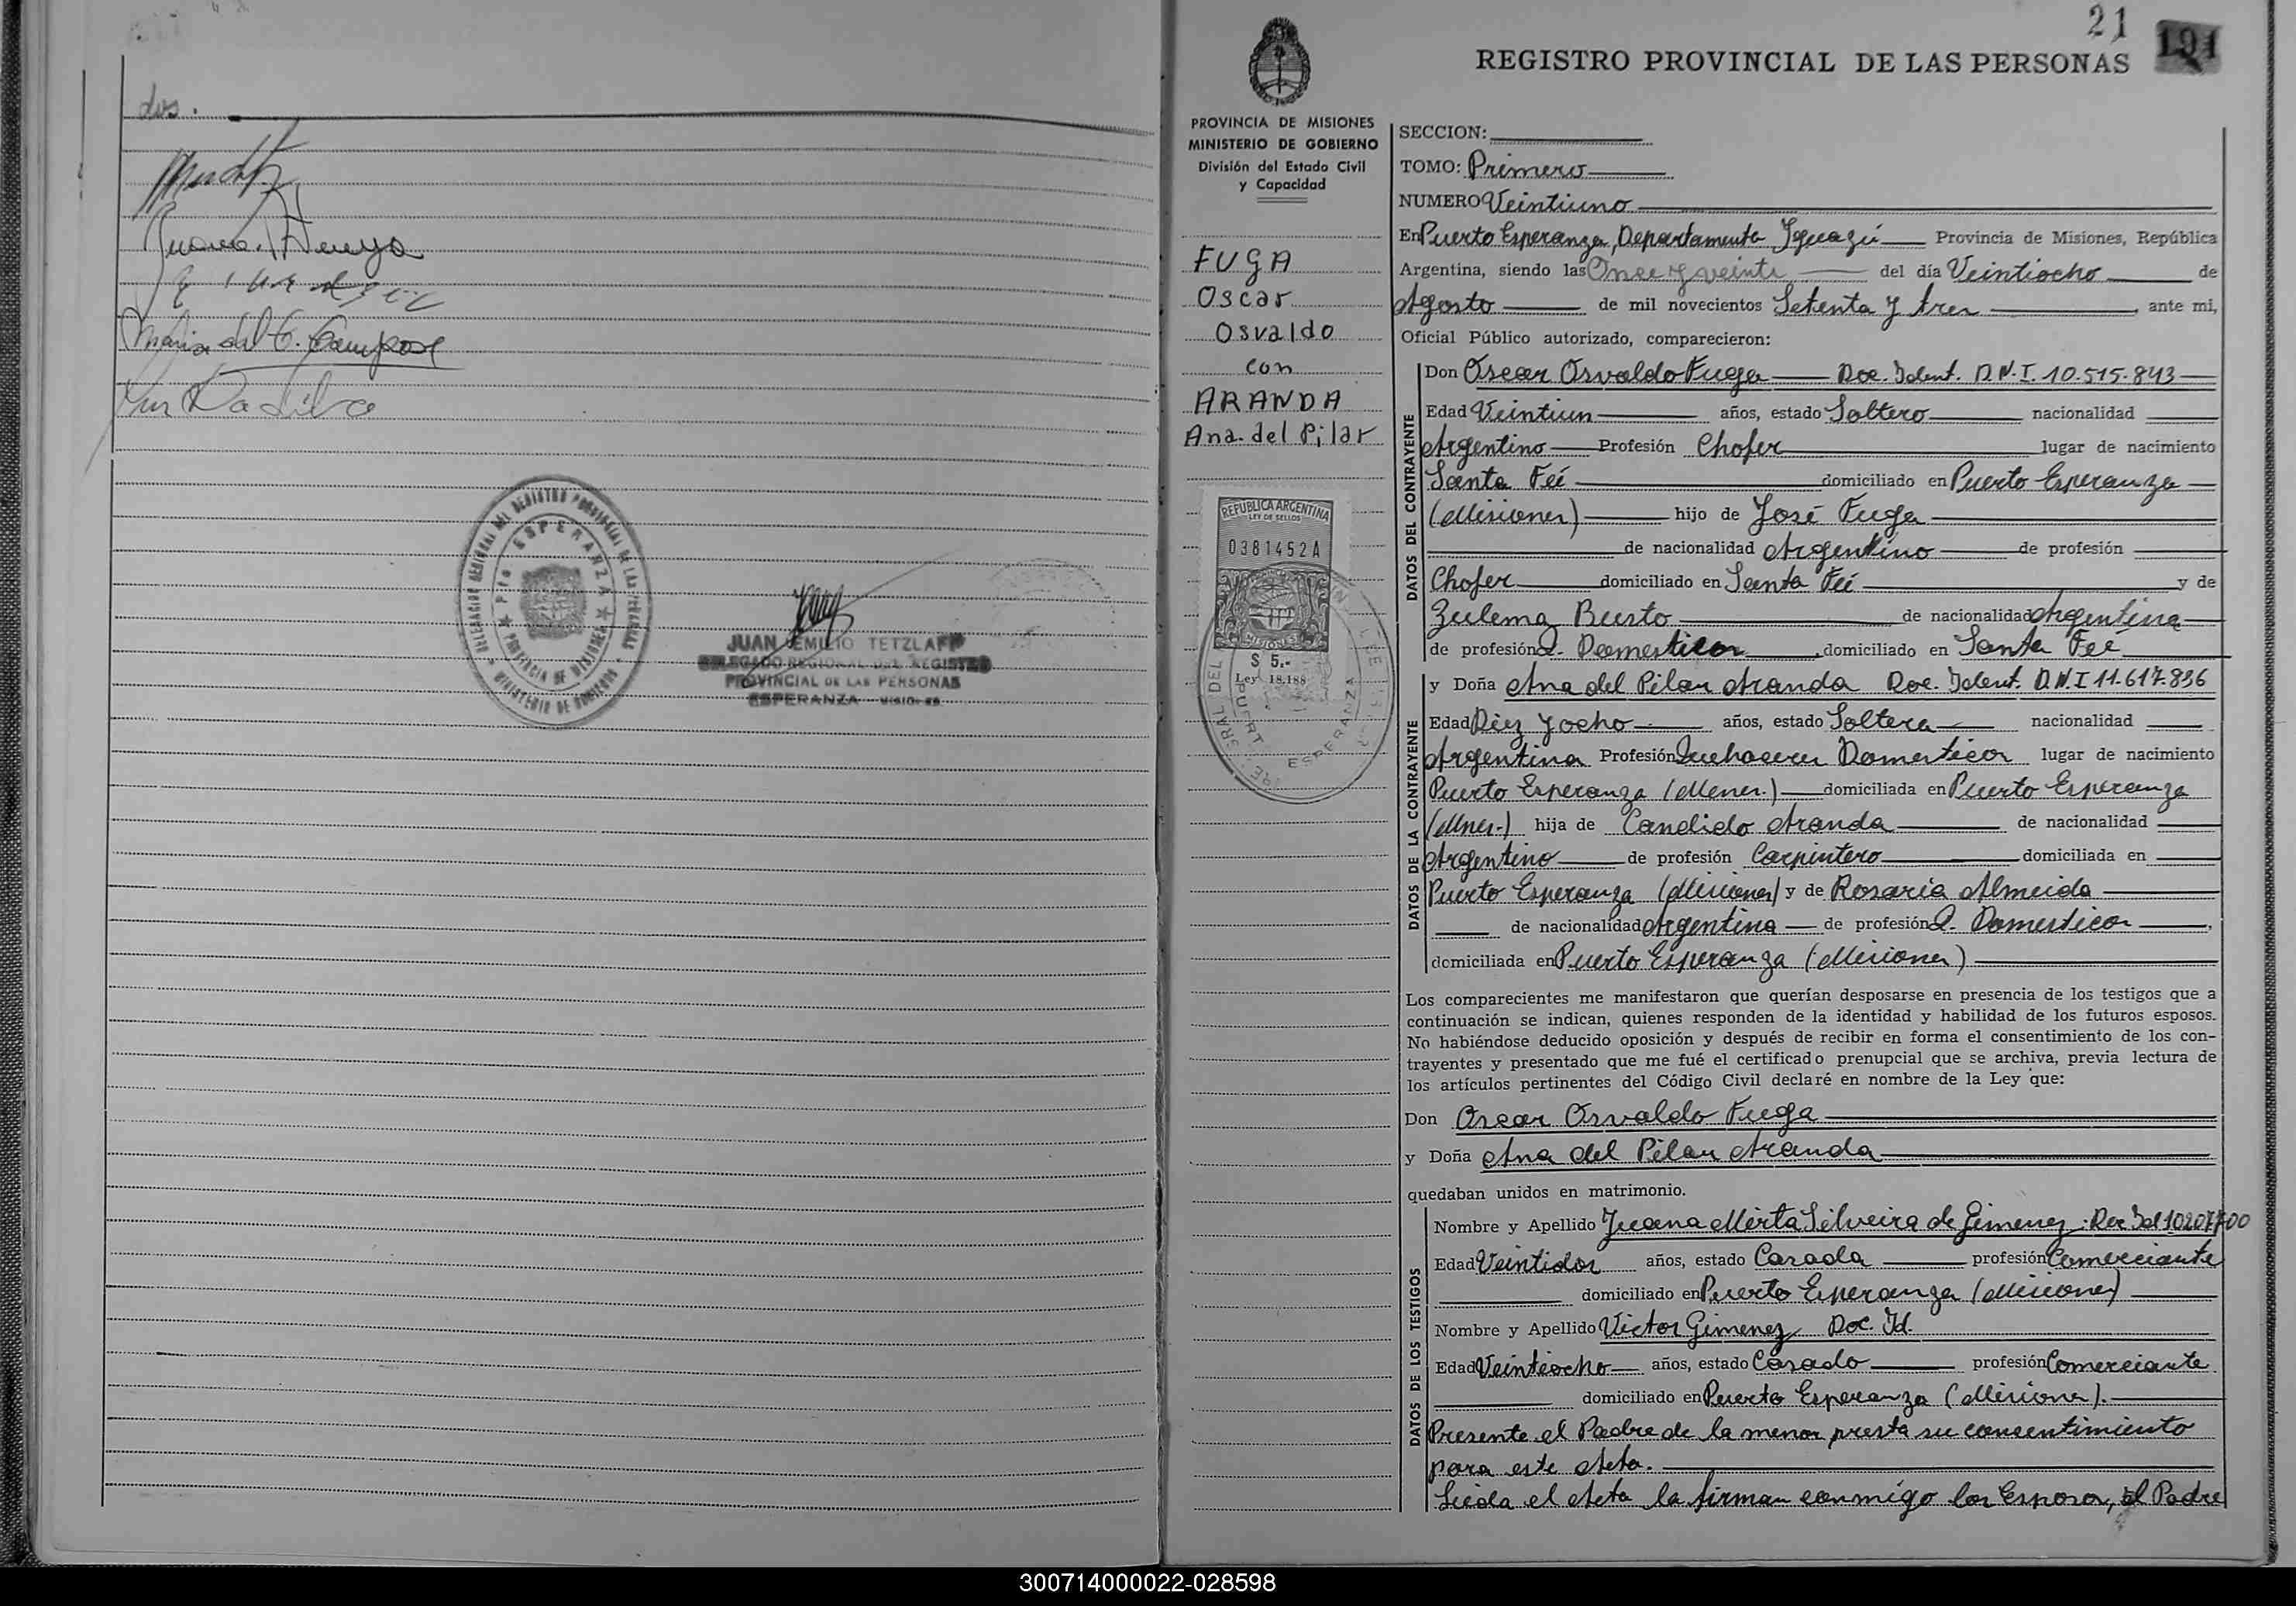 dos.
Maria del C. Campos
Da Silva
DELEGACION REGIONAL DEL REGISTRO PROVINCIAL DE LAS PERSONAS
Pto ESPERANZA
PROVINCIA DE MISIONES
MINISTERIO DE GOBIERNO
JUAN EMILIO TETZLAFF
DELEGADO REGIONAL DEL REGISTRO
PROVINCIAL DE LAS PERSONAS
ESPERANZA
21
191
REGISTRO PROVINCIAL DE LAS PERSONAS
PROVINCIA DE MISIONES
MINISTERIO DE GOBIERNO
División del Estado Civil
y Capacidad
FUGA
Oscar
Osvaldo
con
ARANDA
Ana. del Pilar
REPUBLICA ARGENTINA
LEY DE SELLOS
0381452A
MISIONES
$ 5.-
Ley 18.188
ESPERANZA
SECCION:
TOMO: Primero
NUMERO Veintiuno
En Puerto Esperanza, Departamento Iguazú Provincia de Misiones, República
Argentina, siendo las Once y veinte del día Veintiocho de
Agosto de mil novecientos Setenta y tres, ante mi,
Oficial Público autorizado, comparecieron:
DATOS DEL CONTRAYENTE
Don Oscar Osvaldo Fuga Doc. Ident. D.N.I. 10.515.843
Edad Veintiun años, estado Soltero nacionalidad
Argentino Profesión Chofer lugar de nacimiento
Santa Feé domiciliado en Puerto Esperanza
(Misiones) hijo de José Fuga
de nacionalidad Argentino de profesión
Chofer domiciliado en Santa Feé y de
Zulema Busto de nacionalidad Argentina
de profesión Q. Domesticos, domiciliado en Santa Feé
DATOS DE LA CONTRAYENTE
y Doña Ana del Pilar Aranda Doc. Ident. D.N.I 11.617.836
Edad Diez y ocho años, estado Soltera nacionalidad
Argentina Profesión Quehaceres Domesticos lugar de nacimiento
Puerto Esperanza (Mnes.) domiciliada en Puerto Esperanza
(Mnes.) hija de Candido Aranda de nacionalidad
Argentino de profesión Carpintero domiciliada en
Puerto Esperanza (Misiones) y de Rosaria Almeida
de nacionalidad Argentina de profesión Q. Domesticos,
domiciliada en Puerto Esperanza (Misiones)
Los comparecientes me manifestaron que querían desposarse en presencia de los testigos que a
continuación se indican, quienes responden de la identidad y habilidad de los futuros esposos.
No habiéndose deducido oposición y después de recibir en forma el consentimiento de los con-
trayentes y presentado que me fué el certificado prenupcial que se archiva, previa lectura de
los artículos pertinentes del Código Civil declaré en nombre de la Ley que:
Don Oscar Osvaldo Fuga
y Doña Ana del Pilar Aranda
quedaban unidos en matrimonio.
DATOS DE LOS TESTIGOS
Nombre y Apellido Juana Mirta Silveira de Gimenez
Edad Veintidos años, estado Casada profesión Comerciante
domiciliado en Puerto Esperanza (Misiones)
Nombre y Apellido Victor Gimenez Doc. Id.
Edad Veintiocho años, estado Casado profesión Comerciante
domiciliado en Puerto Esperanza (Misiones).
Presente el Padre de la menor presta su consentimiento
para este Acto.
Leida el Acta la firman conmigo los Esposos, el Padre
300714000022-028598